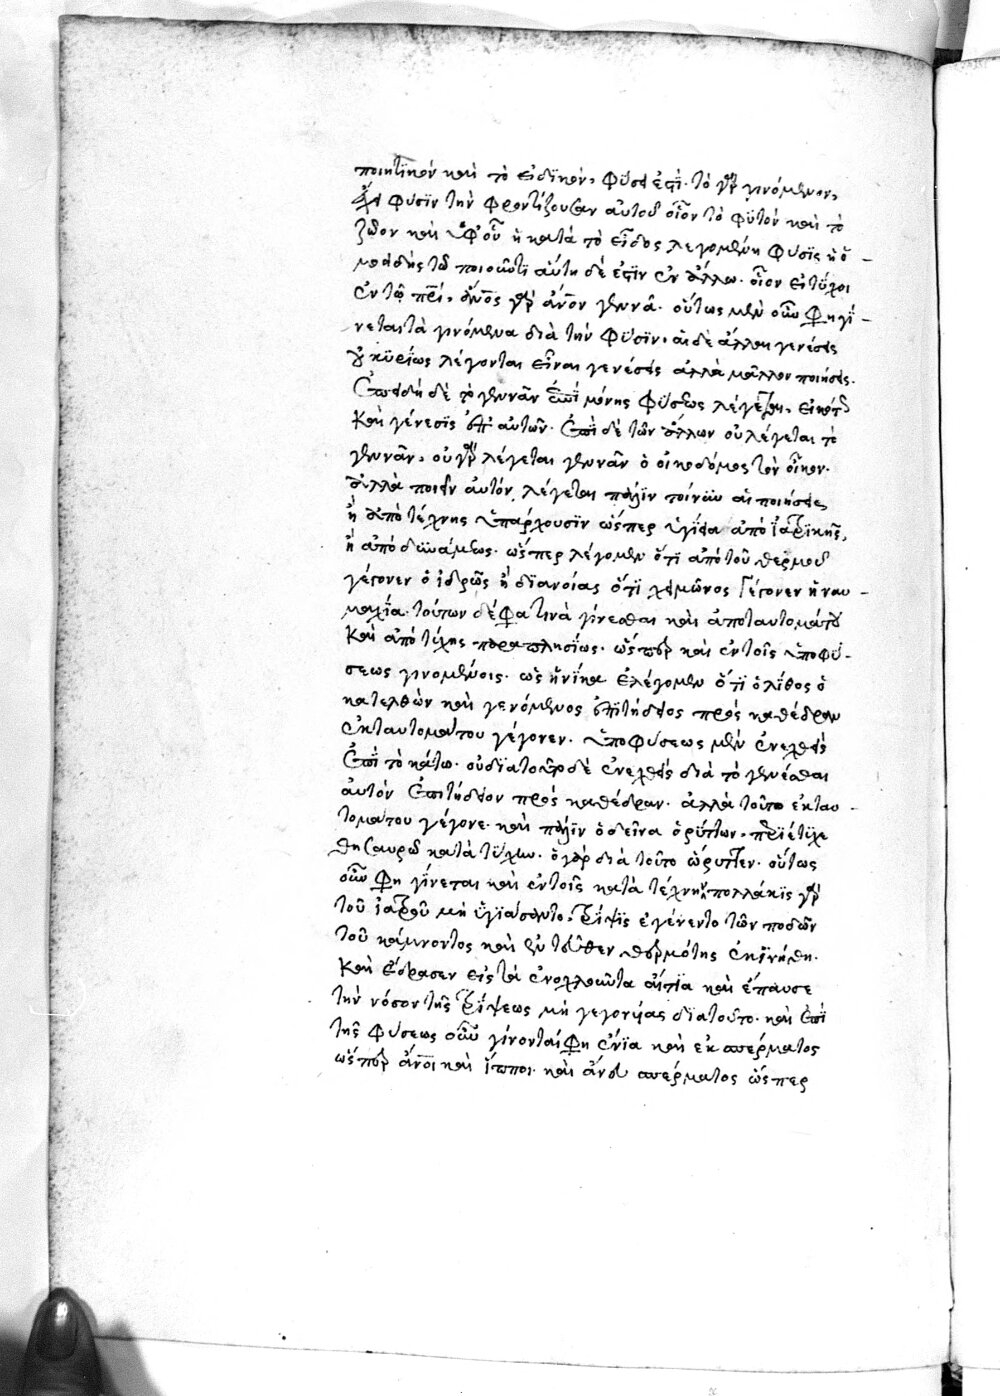 ποιητικὸν καὶ τὸ εἰδικόν, φύσις ἐστί· τὸ γὰρ γινόμενον,
ἔχει φύσιν τὴν φροντίζουσαν αὐτοῦ οἷον τὸ φυτὸν καὶ τὸ
ζῶον καὶ ὑφ' οὗ ἡ κατὰ τὸ εἶδος λεγομένη φύσις ἡ ὁ-
μοειδὴς τῶ ποιοῦντι αὕτη δέ ἐστιν ἐν ἄλλω· οἷον εἰ τύχοι
ἐν τῶ πρι, ἄνος γὰρ ἄνον γεννᾶ· οὕτως μὲν οὖν φη γί-
νεται τὰ γινόμενα διὰ τὴν φύσιν, αἱ δὲ ἄλλαι γενέσεις
οὐ κυρίως λέγονται εἶναι γενέσεις ἀλλὰ μᾶλλον ποιήσεις.
ἐπειδὴ δὲ τὸ γεννᾶν ἐπὶ μόνης φύσεως λέγεται, εἰκότως
καὶ γένεσις ἐπ' αὐτῶν· ἐπὶ δὲ τῶν ἄλλων οὐ λέγεται τὸ
γεννᾶν, οὐ γὰρ λέγεται γεννᾶν ὁ οἰκοδόμος τὸν οἶκον.
ἀλλὰ ποιεῖν αὐτόν, λέγεται πάλιν τοίνυν αἱ ποιήσεις
ἢ ἀπὸ τέχνης ὑπάρχουσιν ὥσπερ ὑγίεια ἀπὸ ἰατρικῆς,
ἢ ἀπὸ δυνάμεως· ὥσπερ λέγομεν ὅτι ἀπὸ τοῦ θερμοῦ
γέγονεν ὁ ἱδρῶς ἢ διανοίας ὅτι χειμῶνος γέγονεν ἡ ναυ-
μαχία· τούτων δέ φα τινὰ γίνεσθαι καὶ ἀπὸ ταυτομάτου
καὶ ἀπὸ τύχης παραπλησίως· ὥσπερ καὶ ἐν τοῖς ὑπὸ φύ-
σεως γινομένοις· ὡς ἡνίκα ἐλέγομεν ὅτι ὁ λίθος ὁ
κατελθὼν καὶ γενόμενος ἐπιτήδειος πρὸς καθέδραν
ἐκ ταυτομάτου γέγονεν· ὑπὸ φύσεως μὲν ἐνεχθεὶς
ἐπὶ τὸ κάτω· οὐ διὰ τοῦτο δὲ ἐνεχθεὶς διὰ τὸ γενέσθαι
αὐτὸν ἐπιτήδειον πρὸς καθέδραν· ἀλλὰ τοῦτο ἐκ ταυ-
τομάτου γέγονε· καὶ πάλιν ὁ δεῖνα ὀρύττων, περιέτυχε
θησαυρῶ κατὰ τύχην· ὁ γὰρ διὰ τοῦτο ὤρυττεν· οὕτως
οὖν φη γίνεται καὶ ἐν τοῖς κατὰ τέχνην, πολλάκις γὰρ
τοῦ ἰατροῦ μὴ ὑγιάσαντος, τρίψις ἐγένετο τῶν ποδῶν
τοῦ κάμνοντος καὶ ἐντεῦθεν θερμότης ἐκινήθη.
καὶ ἔδρασεν εἰς τὰ ἐνοχλοῦντα αἴτια καὶ ἔπαυσε
τὴν νόσον τῆς τρίψεως μὴ γεγονυίας διὰ τοῦτο· καὶ ἐπὶ
τῆς φύσεως οὖν γίνονταί φη ἔνια καὶ ἐκ σπέρματος
ὥσπερ ἄνοι καὶ ἵπποι· καὶ ἄνευ σπέρματος ὥσπερ